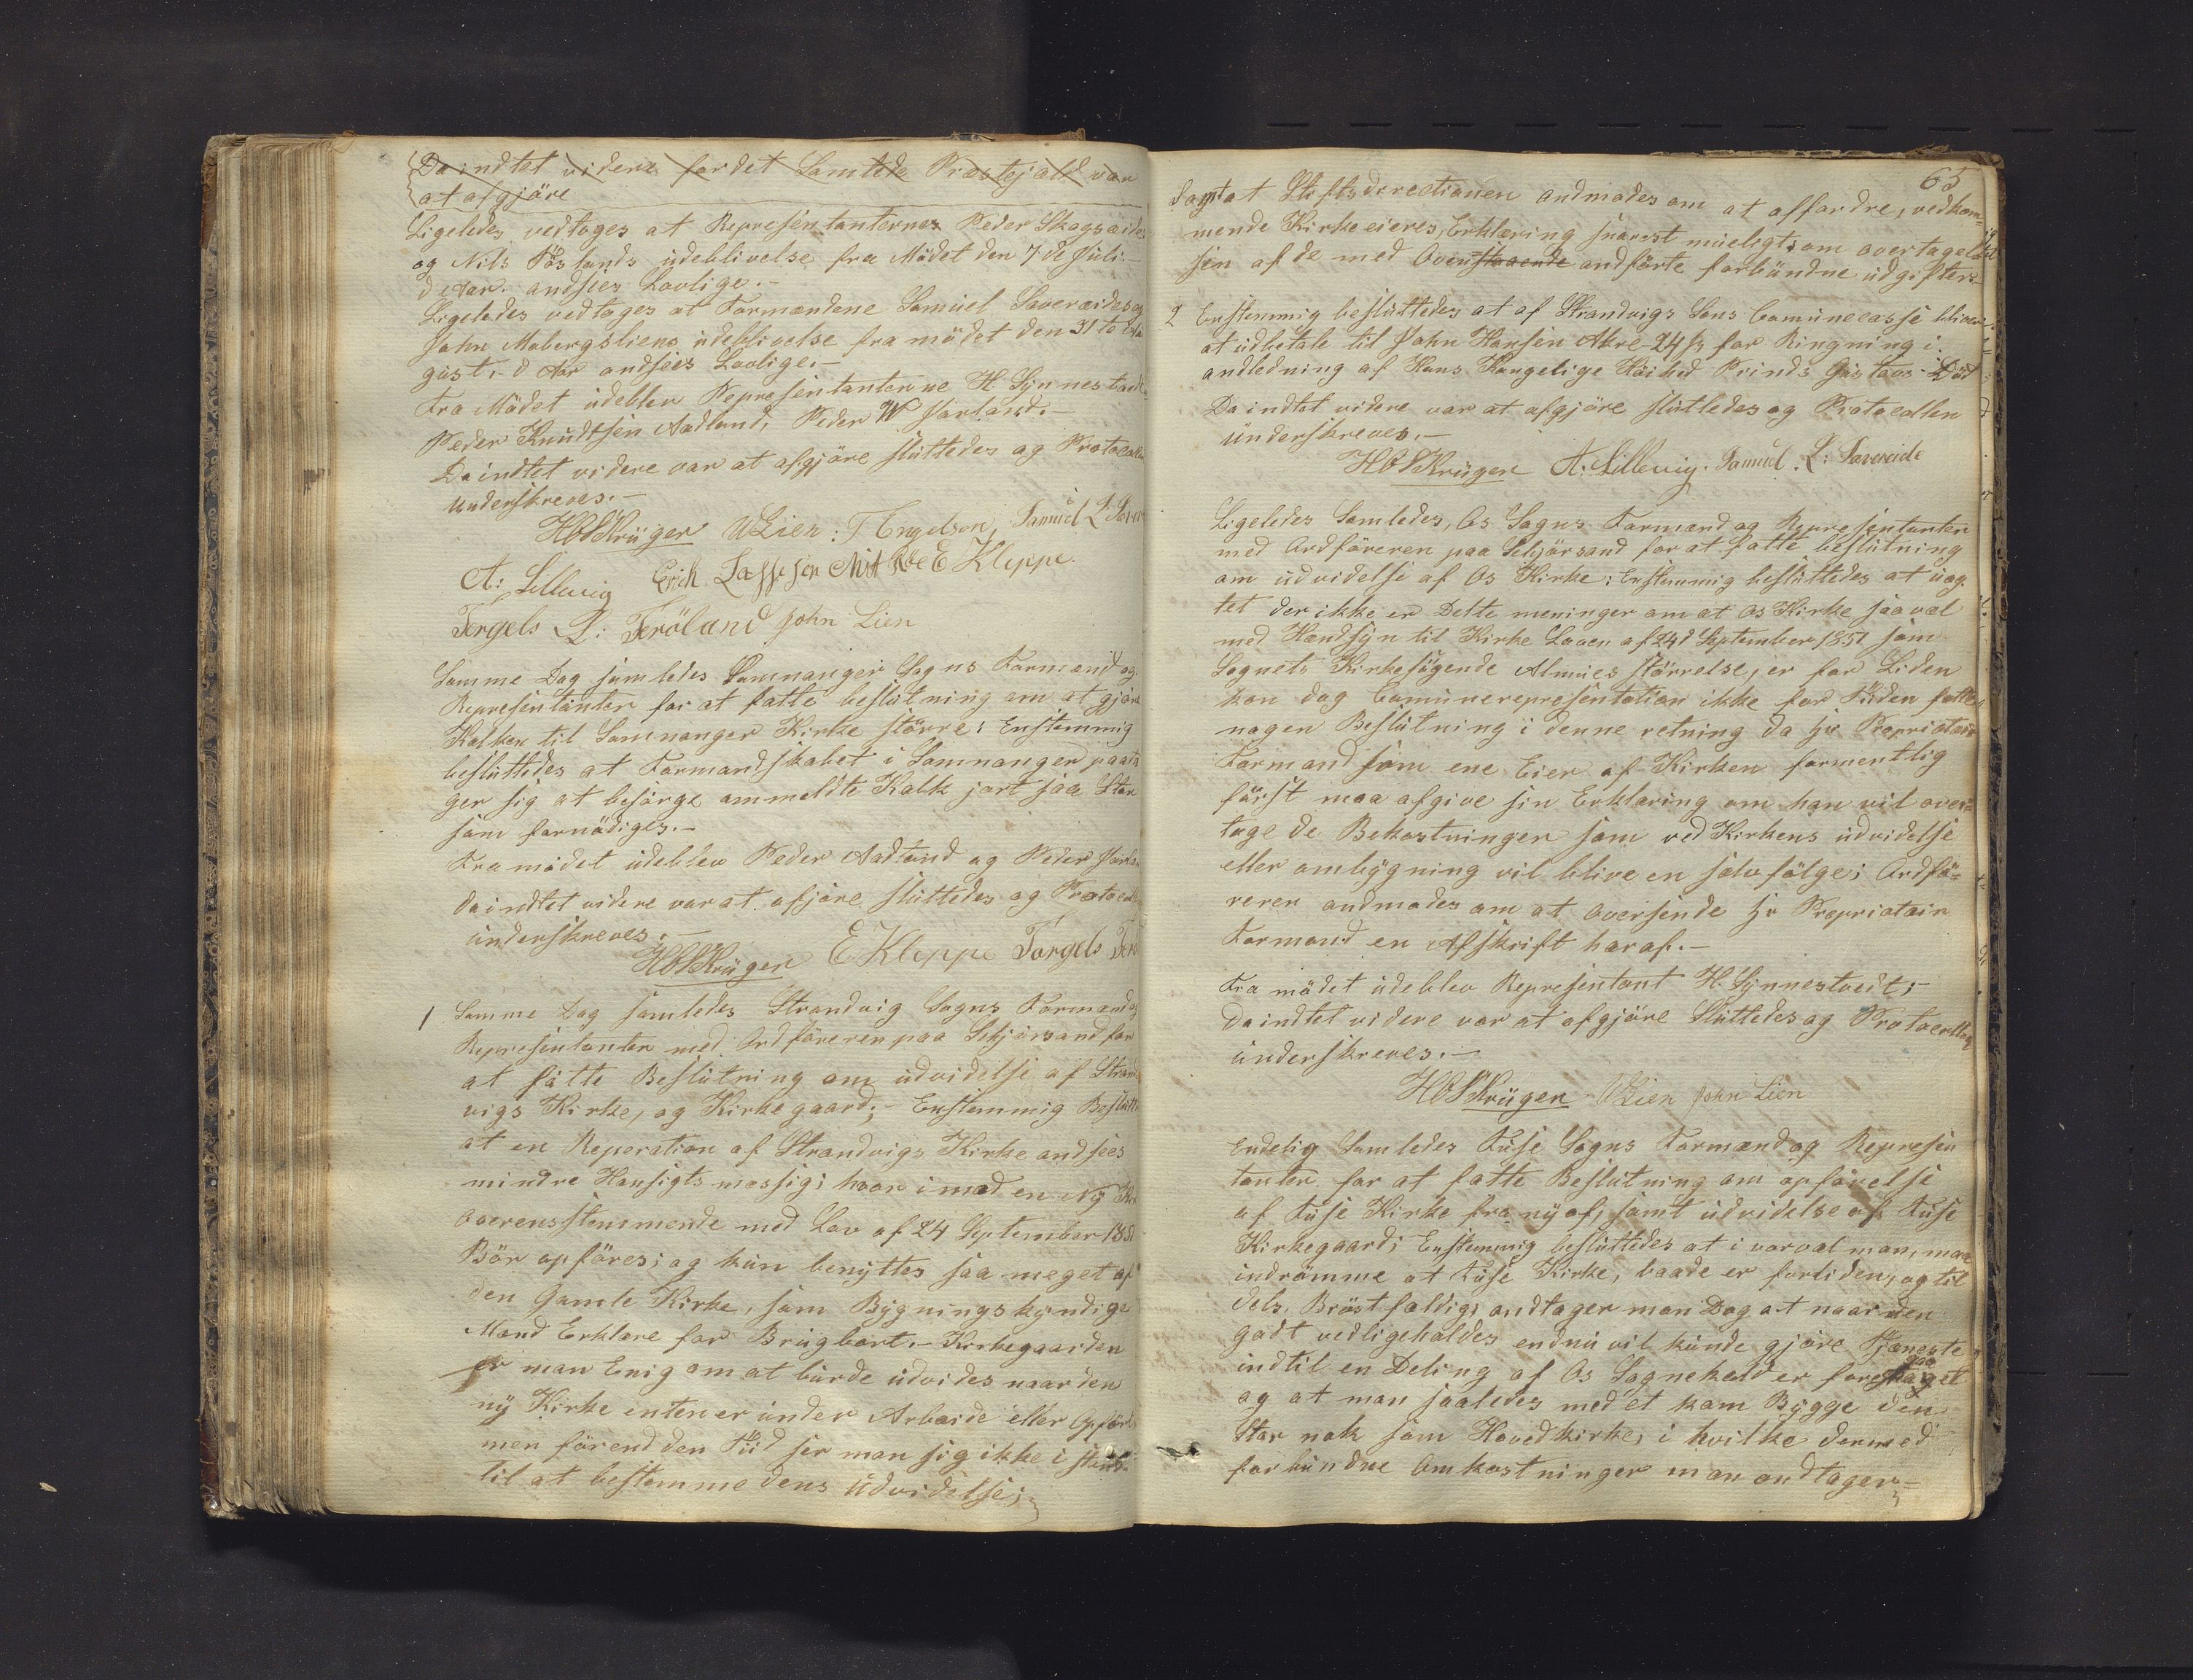 Da indtet videre for det Samlede Præstejæld var
at afgjöre
Ligeledes vedtoges at Representanternes Peder Skogseides
og Nils Röslands udeblivelse fra Mödet den 7de Juli
d Aar. andsees Lovlige.-
Ligeledes vedtoges at Formændene Samuel Saveraides og
John Mobergsliens udeblivelse fra mödet den 31te
gust. d Aar andsees Lovlige.-
Fra Mödet udeblev Representanterne H. Synnestvedt
Peder Knudtsen Aadland, Peder W Havland.-
Da indtet videre var at afgjöre sluttedes og Protocollen
underskreves.-
HOSKrüger WLien: T Engelsen, Samuel L: Saver
A: Lillevig Erik Lassesen E Kleppe.
Torgels L: Teröland John Lien
Samme Dag samledes Samnanger Sogns Formænd og
Representanter for at fatte beslutning om at gjöre
Kalken til Samnanger Kirke större: Enstemmig
besluttedes at Formandskabet i Samnanger paata
ger sig at besörge ommeldte Kalk gjort saa Stor
som fornödiges.-
Fra mödet udeblev Peder Aadland og Peder Havland
da indtet videre var at afjöre sluttedes og Protocollen
underskreves.-
HOSKrüger E Kleppe Torgels Terö
1 Samme Dag samledes Strandvig Sogns Formænd og
Representanter med Ordföreren paa Schjörsand for
at fatte Beslutning om udvidelse af Strand
vigs Kirke, og Kirkegaard;- Enstemmig Beslutte
at en Reperation af Strandvigs Kirke andsees
mindre Hensigtsmæssig; hvor imod en Ny Kir
overensstemmende med Lov af 24 September 1851
Bör opföres; og kun benyttes saa meget af
den Gamle Kirke, som Bygningskyndige
Mænd Erklære for Brugbart.- Kirkegaarden
er man Enig om at burde udvides naar den
ny Kirke enten er under Arbeide eller Opfört
men förend den Tiid ser man sig ikke i stand
til at bestemme dens Udvidelse;
65
Samt at Stiftsdirectionen andmodes om at affordre, vedkom=
mende Kirkeeieres, Erklæring snarest muelegt, om overtagel
sen af de med Ovenstaaende andförte forbundne udgifter.-
2 Enstemmig besluttedes at af Strandvigs Sons Comunecasse bliver
at udbetale til John Hansen Akre 24 s for Ringning i
andledning af Hans Kongelige Höihed Prinds Gustavs Död
Da indtet videre var at afgjöre sluttedes og Protocollen
underskreves.-
HOSKrüger A: Lillevig. Samuel. L: Saveraide
Ligeledes Samledes, Os Sogns Formænd og Representanter
med Ordföreren paa Schjörsand for at fatte beslutning
om udvidelse af Os Kirke: Enstemmig besluttedes at uag-
tet der ikke er Delte meninger om at Os Kirke saavel
med Hændsyn til Kirke Loven af 24d September 1851 som
Sognets Kirkesögende Almues störrelse, er for Liden
kan dog Comunerepresentation ikke for Tiiden fatte
nogen Beslutning i denne retning da Hr Propriatair
Formand som ene Eier af Kirken formentlig
först maa afgive sin Erklæring om han vil over=
tage de Bekostninger som ved Kirkens udvidelse
eller ombygning vil blive en selvfölge; Ordfö=
reren andmodes om at oversende Hr Propriatair
Formand en Afskrift heraf.-
Fra mödet udeblev Representant H. Synnestvedt;-
Da indtet videre var at afgjöre Sluttedes og Protocollen
underskreves.-
HOSKrüger WLien John Lien
Endelig Samledes Fuse Sogns Formænd og Represen
tanter for at fatte Beslutning om opförelse
af Fuse Kirke fra ny af, samt udvidelse af Fuse
Kirkegaard; Enstemmig besluttedes at i vorvel man, maa
indrömme at Fuse Kirke, baade er forliden, og til
dels, Bröstfældig; andtager man Dog at naar den
godt vedligeholdes endnu vil kunde gjöre Tjeneste
indtil en Deling af Os Sognekald er foregaaet
og at man saaledes med et kam Bygge den
Stor nok som Hovedkirke; i hvilke dermed
forbundne Omkostninger man andtager=